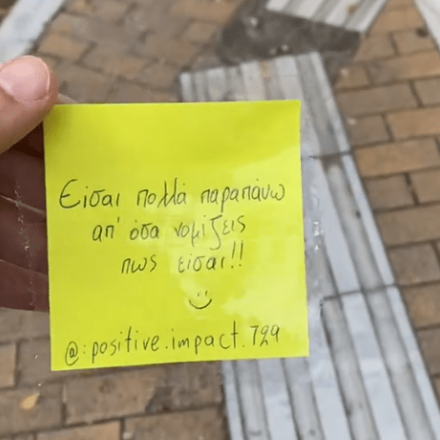 Είσαι πολλά παραπάνω
απ' όσα νομίζεις
πως είσαι!!
@:positive.impact.729